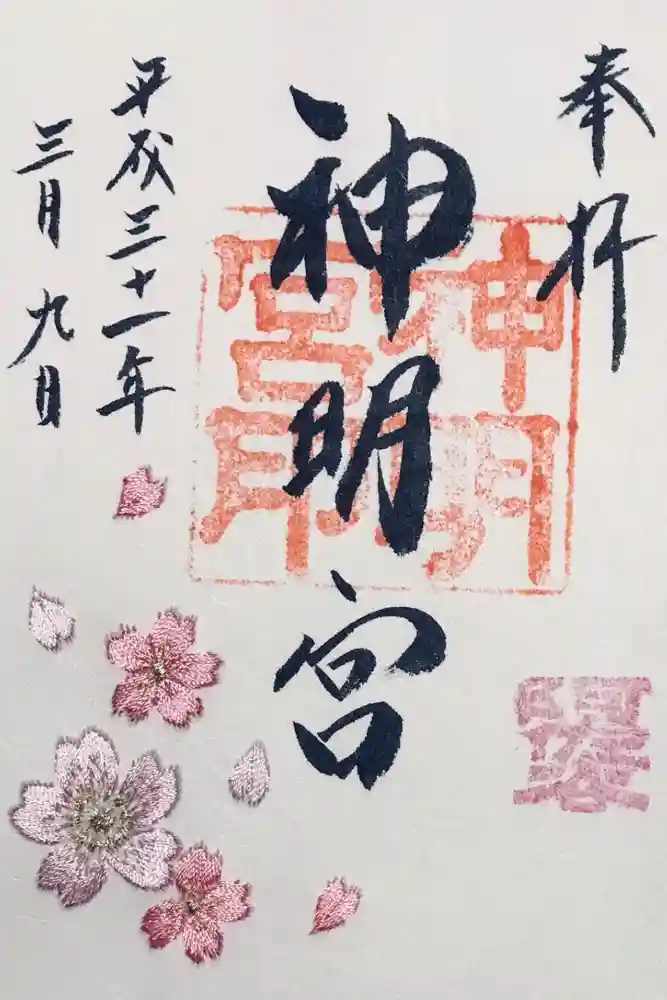 奉拝
神明宮
平成三十一年
三月九日